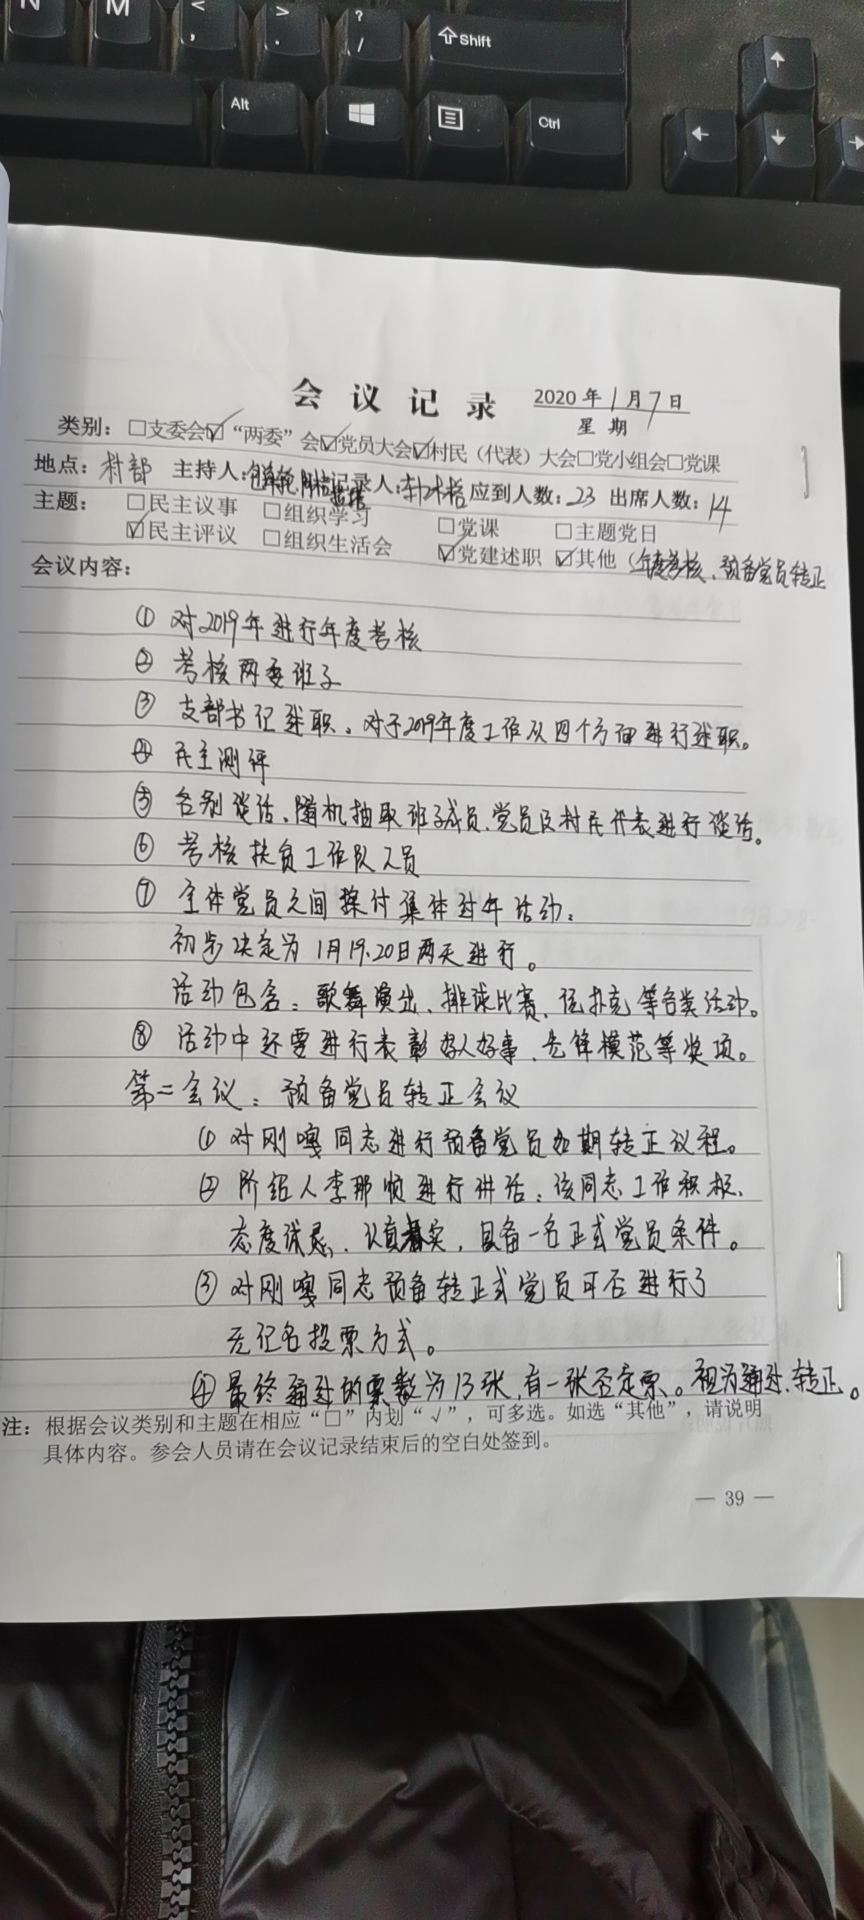 N M < , > . ? / Shift
Alt Ctrl
会 议 记 录 2020 年 1 月 7 日
星 期
类别：□支委会☑“两委”会☑党员大会☑村民（代表）大会□党小组会□党课
地点：村部 主持人： 记录人： 应到人数：23 出席人数：14
主题：□民主议事 □组织学习 □党课 □主题党日
☑民主评议 □组织生活会 ☑党建述职 ☑其他（年度考核、预备党员转正
会议内容：
① 对2019年进行年度考核
② 考核两委班子
③ 支部书记述职。对于2019年度工作从四个方面进行述职。
④ 民主测评
⑤ 各别谈话、随机抽取班子成员、党员及村民代表进行谈话。
⑥ 考核扶贫工作队人员
⑦ 全体党员之间探讨集体过年活动：
初步决定为1月19.20日两天进行。
活动包含：歌舞演出、排球比赛、玩扑克等各类活动。
⑧ 活动中还要进行表彰好人好事、先锋模范等奖项。
第二会议：预备党员转正会议
① 对刚嘎同志进行预备党员如期转正议程。
② 介绍人李那顺进行讲话：该同志工作积极、
态度诚恳、认真 实，具备一名正式党员条件。
③ 对刚嘎同志预备转正式党员可否进行了
无记名投票方式。
④ 最终通过的票数为13张，有一张否定票。视为通过、转正。
注：根据会议类别和主题在相应“□”内划“√”，可多选。如选“其他”，请说明
具体内容。参会人员请在会议记录结束后的空白处签到。
— 39 —